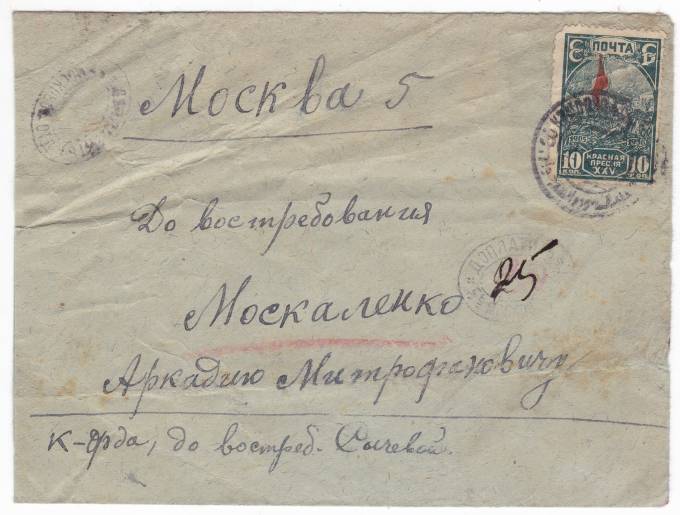 ПОЧТА
10 КОП. КРАСНАЯ ПРЕСНЯ XXV 10 КОП.
Москва 5
До востребования
ДОПЛАТИТЬ
25
Москаленко
Аркадию Митрофановичу
К-орда, до востреб. Сычевой.